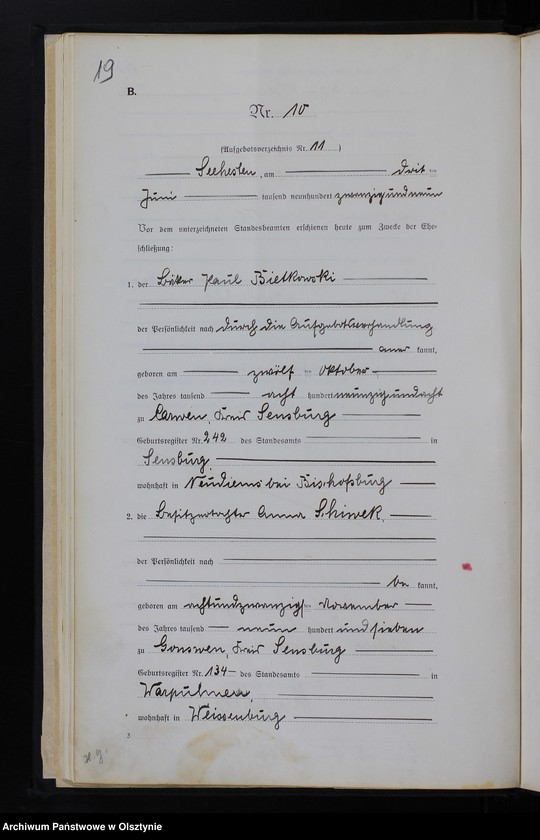 19
B.
Nr. 10
(Aufgebotsverzeichnis Nr. 11)
Seehesten, am drit ten
Juni tausend neunhundert zwanzigundneun
Vor dem unterzeichneten Standesbeamten erschienen heute zum Zwecke der Ehe-
schließung:
1. der Bäcker Paul Bietkowski
der Persönlichkeit nach durch die Aufgebotsverhandlung
aner kannt,
geboren am zwölf ten Oktober
des Jahres tausend acht hundert neunzigundacht
zu Carwen, Kreis Sensburg
Geburtsregister Nr. 242 des Standesamts in
Sensburg,
wohnhaft in Neudiems bei Bischofsburg
2. die Besitzertochter Anna Schiwek,
der Persönlichkeit nach
be kannt,
geboren am achtundzwanzigs ten November
des Jahres tausend neun hundert und sieben
zu Gonswen, Kreis Sensburg
Geburtsregister Nr. 134 des Standesamts in
Warpuhnen,
wohnhaft in Weissenburg
3
Archiwum Państwowe w Olsztynie